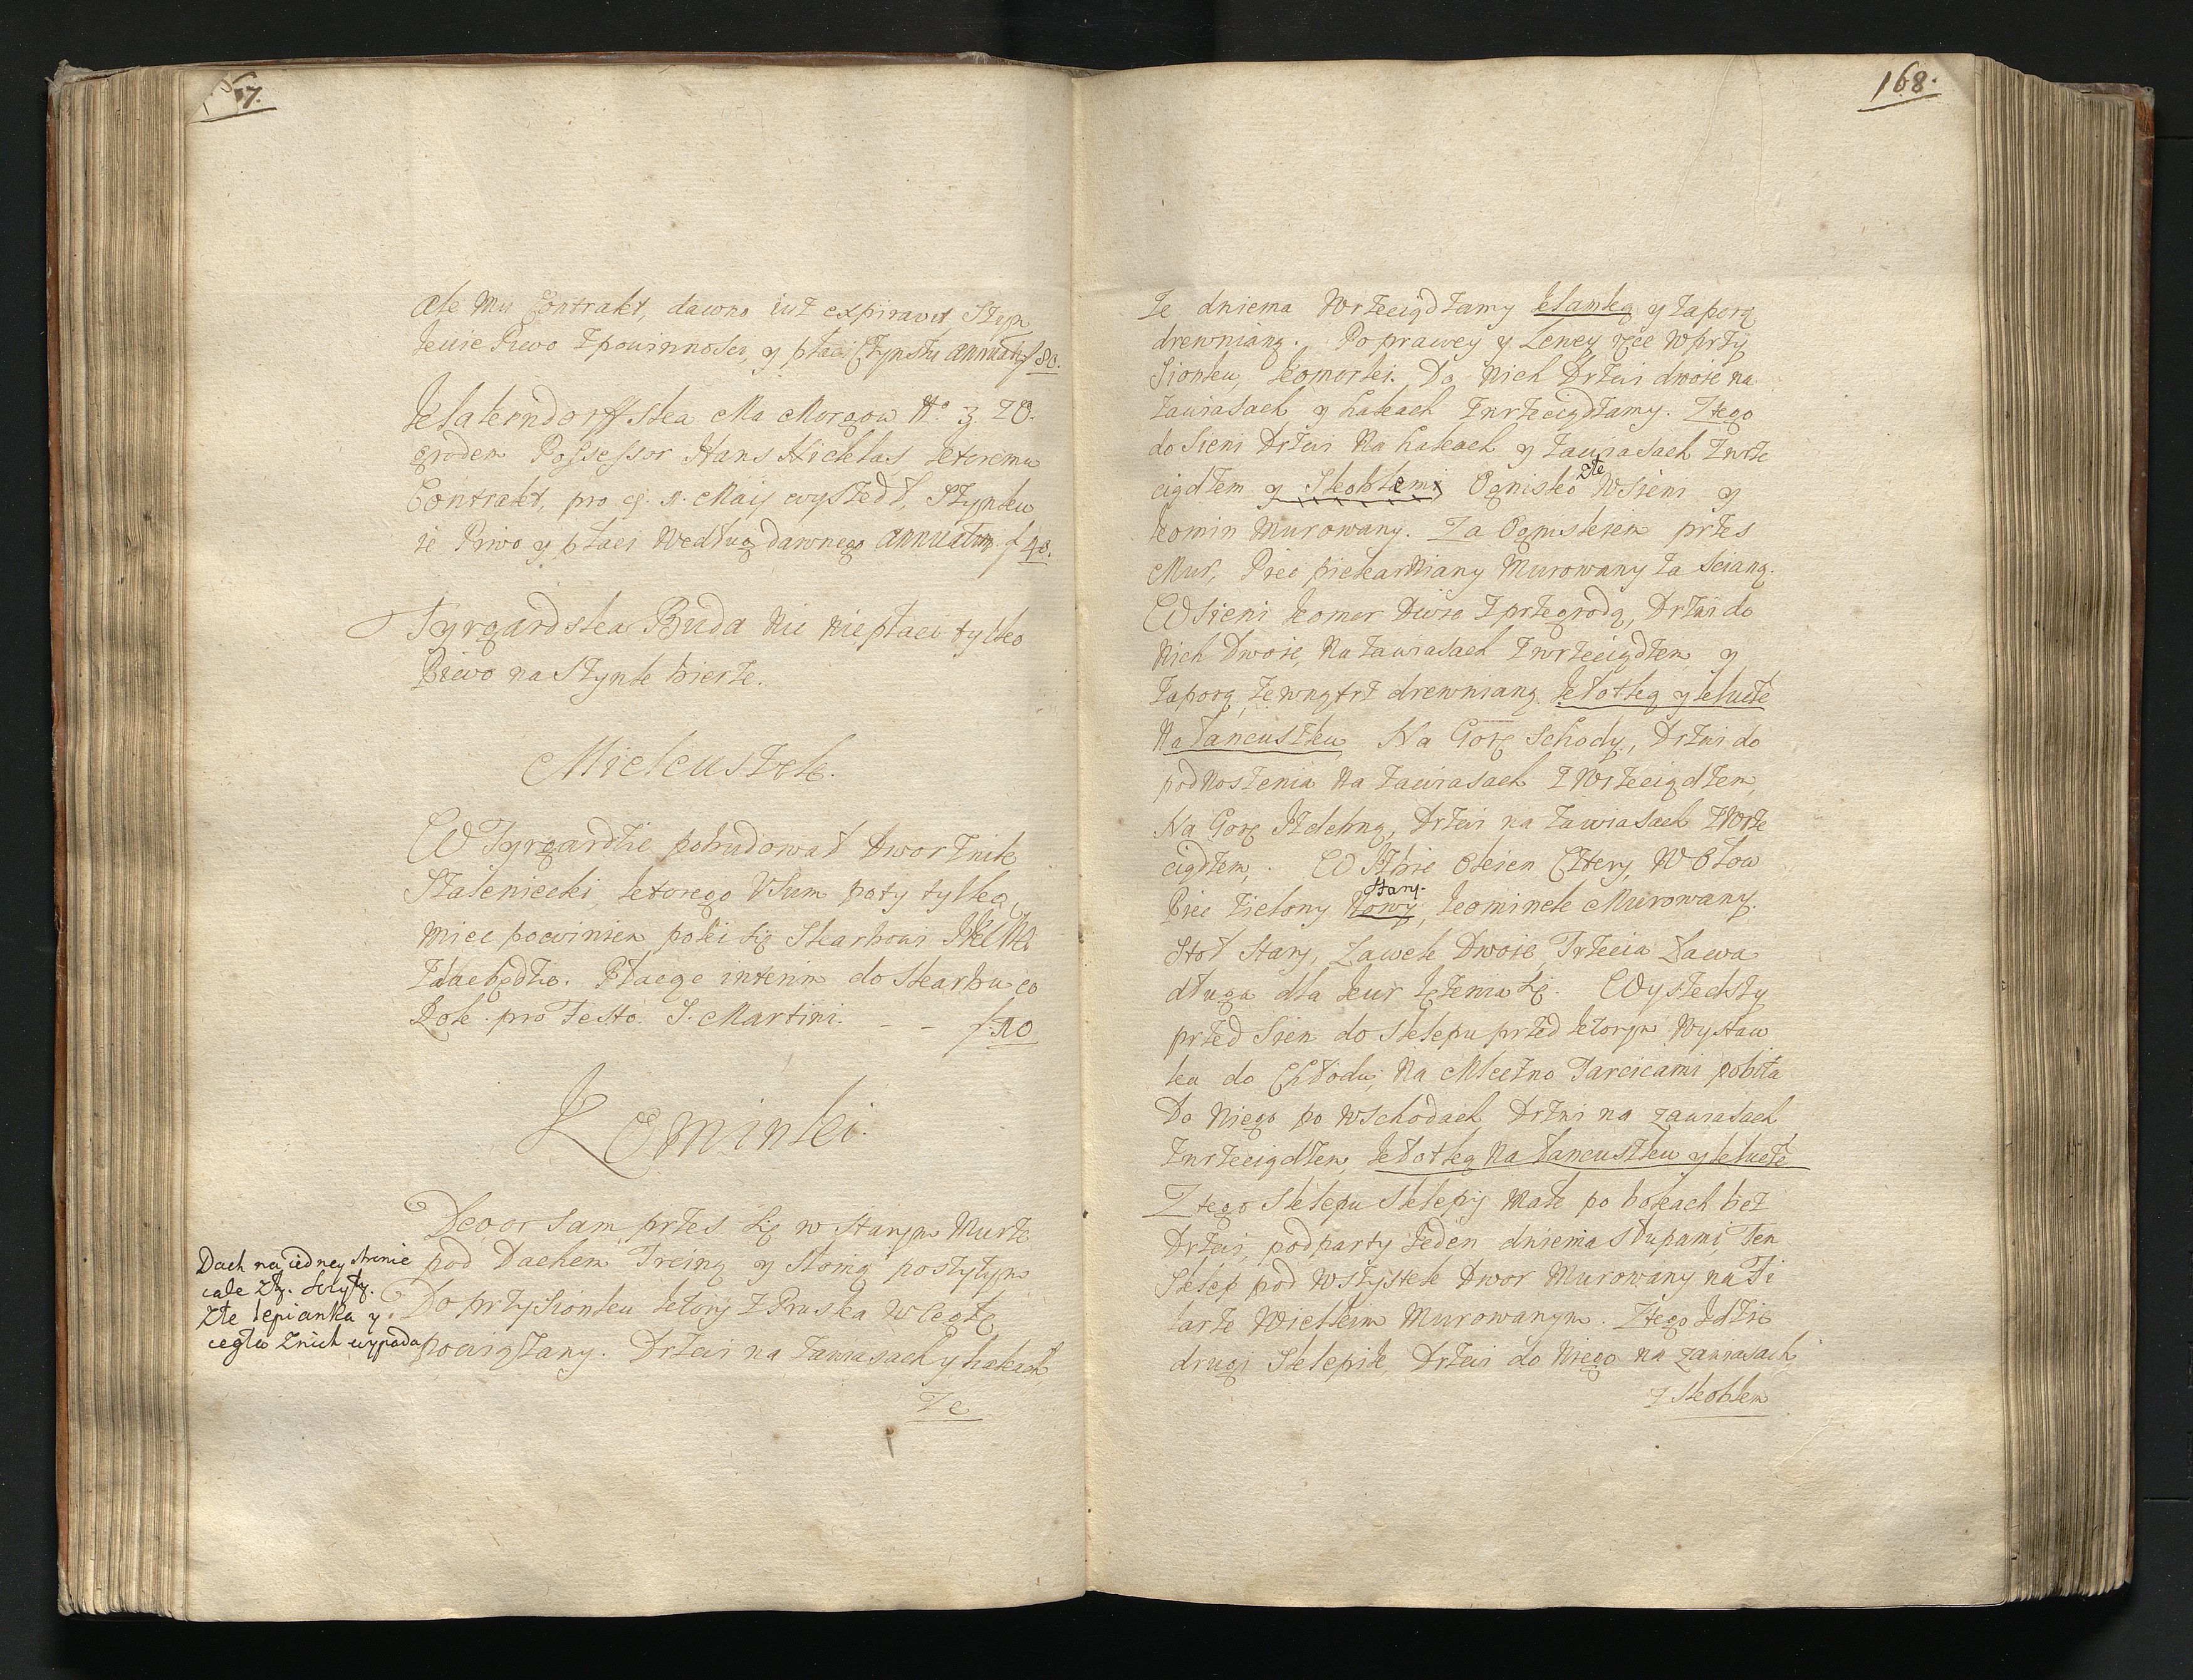 167.
Ale Mu Contrakt, dawno iuż expiravit, Szyn
kuie Piwo z powinności, y płaci Czynszu annuatim f 80.
Klaterndorffska Ma Morgow No 3. z O.
grodem Possessor Hans Nicklas ktoremu
Contrakt, pro 1. Maij wyszedł, Szynku
ie Piwo y płaci Według dawnego annuatim f 40.
Tyrgardska Buda Nic nie płaci tylko
Piwo na Szynk bierze.
Mickuszek.
W Tyrgardzie pobudował Dworznik
Szaleniecki, ktorego Usum poty tylko,
Miec powinien poki się Skarbowi
zdac będzie. Płacąc interim do Skarbu co
Rok pro Festo S. Martini. – – f: 10
Kominki.
Dwor sam przez się w starym Murze
pod Dachem Trciną y słomą poszytym
Do przysionku ktory z Pruska w Cegłę
powiązany. Drzwi na zawiasach y hakach
Ze
Dach na iedney stronie
cale zły. szczyty.
złe lepianka y
cegła z nich wypada
168.
Ze dwiema Wrzeciądzamy klamką y zaporą
drewnianą. Po prawey y Lewey ręce w przy
sionku, komorki. Do Nich Drzwi dwoie na
zawiasach y hakach z wrzeciądzamy. Z tego
do Sieni Drzwi Na hakach y zawiasach z wrze
ciądzem y Skoblemi Ognisko złe w Sieni y
komin Murowany. Za Ogniskiem przez
Mur, Piec piekarniany Murowany za scianą.
W Sieni komor Dwie z przegrodą, Drzwi do
Nich Dwoie, Na zawiasach z wrzeciądzem y
zaporą zewnątrz drewnianą kłotką y klucze
Na łancuszku Na Gorę Schody, Drzwi do
podnoszenia Na zawiasach z Wrzeciądzem,
Na Gorę Izdebną, Drzwi na zawiasach z Wrze
ciądzem. W Izbie Okien Cztery, w Ołow
Piec zielony Nowy stary. kominek Murowany.
Stoł stary, Ławek Dwoie, Trzecia Ława
długa dla kur lężenia się. Wyszedszy
przed Sien do Sklepu przed ktorym Wystaw
ka do Chłodu, Na Mleczno Tarcicami pobita
Do Niego po wschodach Drzwi na zawiasach
z wrzeciądzem, kłotką Na łancuszku y klucze
Z tego Sklepu Sklepy Małe po bokach bez
Drzwi, podparty Jeden dwiema słupami, Ten
Sklep pod wszystek Dwor Murowany na Fi
larze Wielkim Murowanym. Z tego Idzie
drugi Sklepik, Drzwi do Niego na zawiasach
z Skoblem